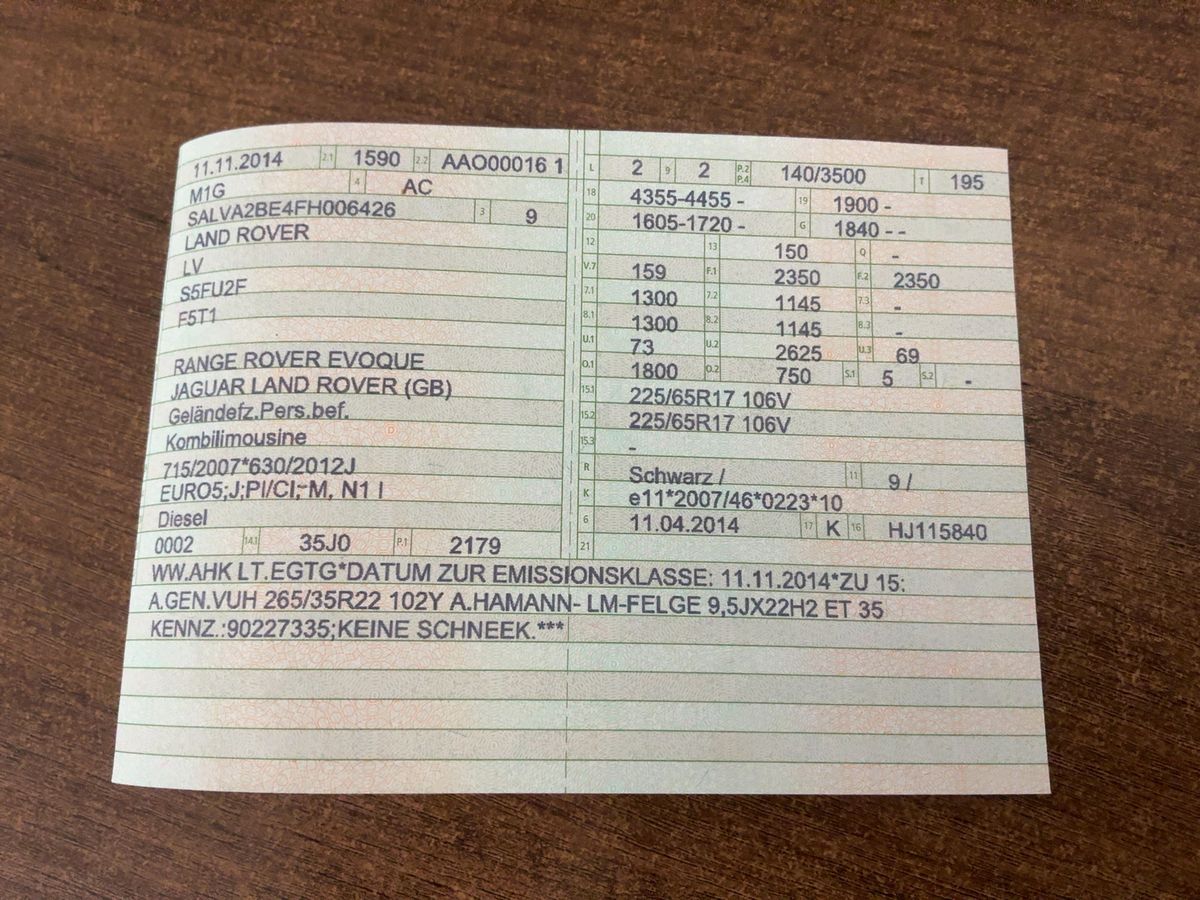 11.11.2014 2.1 1590 2.2 AAO00016 1
M1G 4 AC
SALVA2BE4FH006426 3 9
LAND ROVER
LV
S5FU2F
F5T1
RANGE ROVER EVOQUE
JAGUAR LAND ROVER (GB)
Geländefz.Pers.bef.
Kombilimousine
715/2007*630/2012J
EURO5;J;PI/CI;M, N1 I
Diesel
0002 14.1 35J0 P.1 2179
L 2 9 2 P.2 P.4 140/3500 T 195
18 4355-4455 - 19 1900 -
20 1605-1720 - G 1840 - -
12 13 150 Q -
V.7 159 F.1 2350 F.2 2350
7.1 1300 7.2 1145 7.3 -
8.1 1300 8.2 1145 8.3 -
U.1 73 U.2 2625 U.3 69
O.1 1800 O.2 750 S.1 5 S.2 -
15.1 225/65R17 106V
15.2 225/65R17 106V
15.3 -
R Schwarz / 11 9 /
K e11*2007/46*0223*10
6 11.04.2014 17 K 16 HJ115840
21
WW.AHK LT.EGTG*DATUM ZUR EMISSIONSKLASSE: 11.11.2014*ZU 15:
A.GEN.VUH 265/35R22 102Y A.HAMANN- LM-FELGE 9,5JX22H2 ET 35
KENNZ.:90227335;KEINE SCHNEEK.***